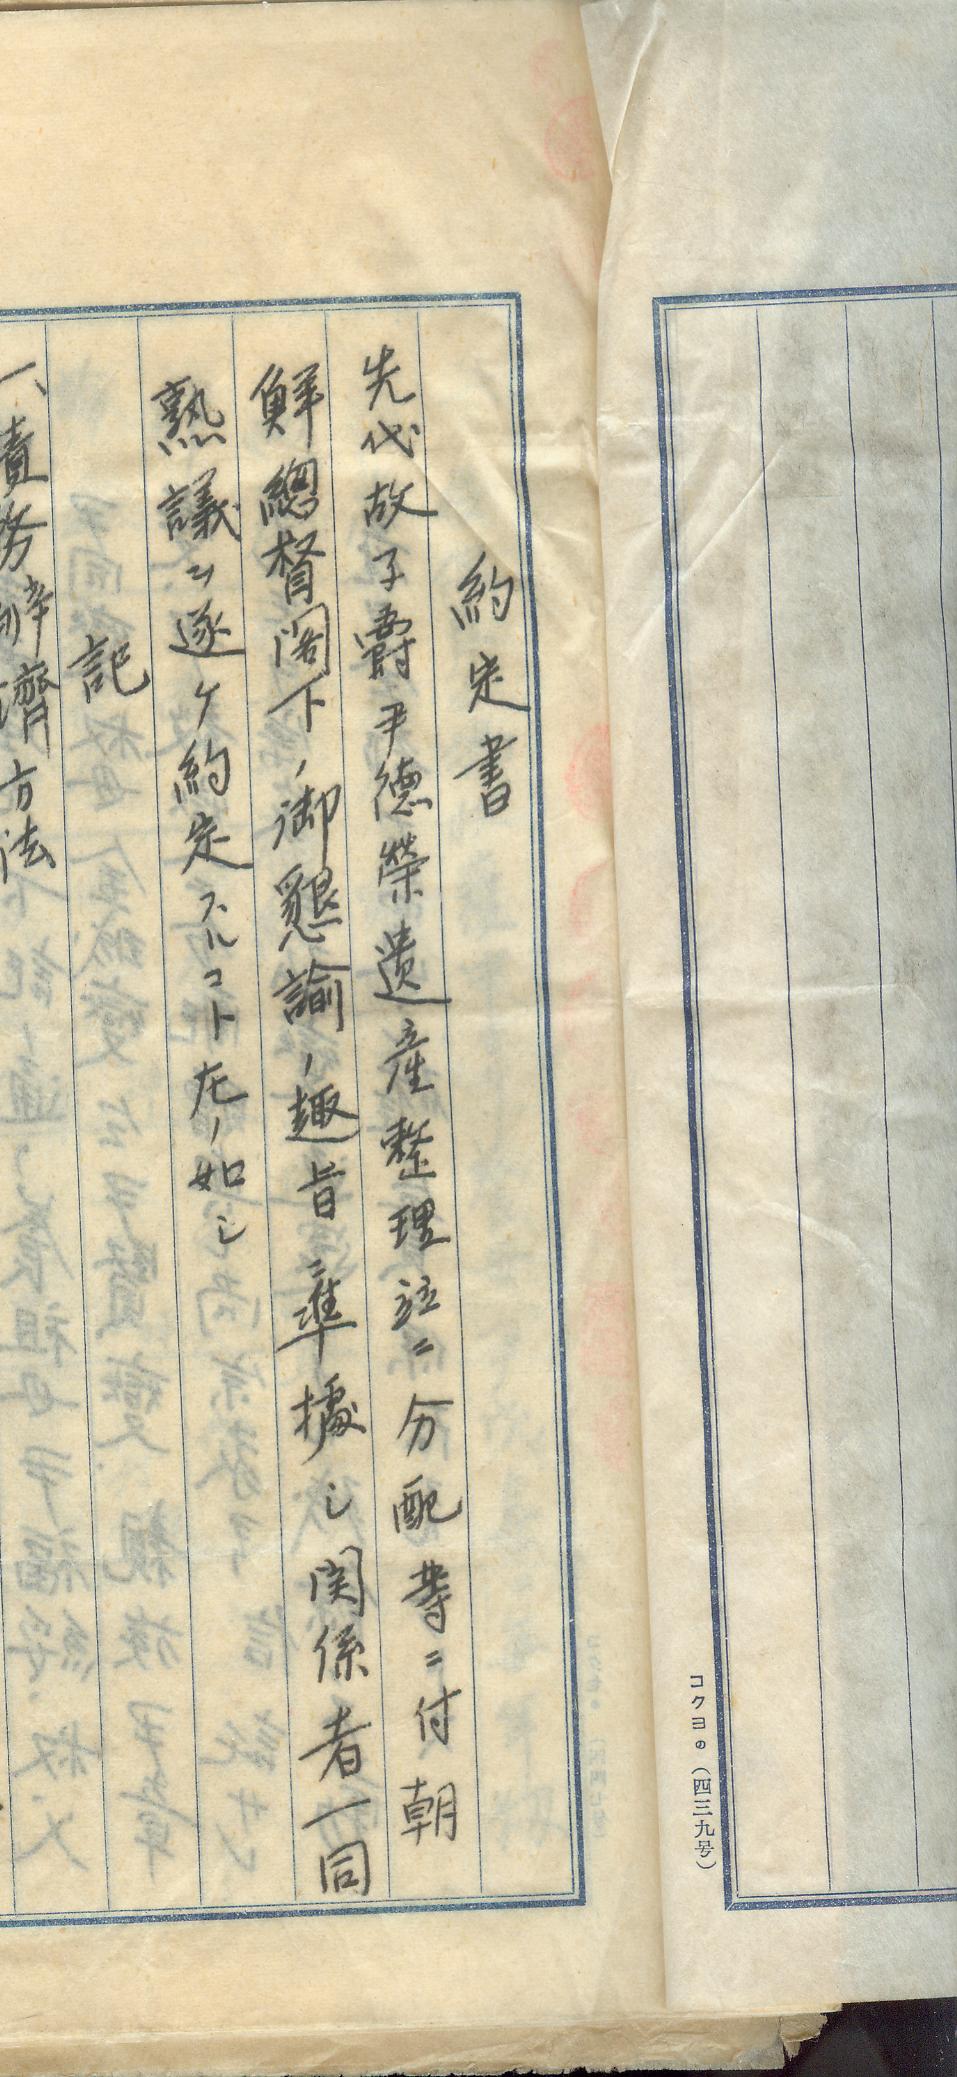 約定書
先代故子爵尹德榮遺産整理並ニ分配等ニ付朝
鮮總督閣下ノ御懇諭ノ趣旨ニ準據シ関係者一同
熟議ヲ遂ケ約定スルコト左ノ如シ
記
一、債務辨濟方法
コクヨの(四三九号)